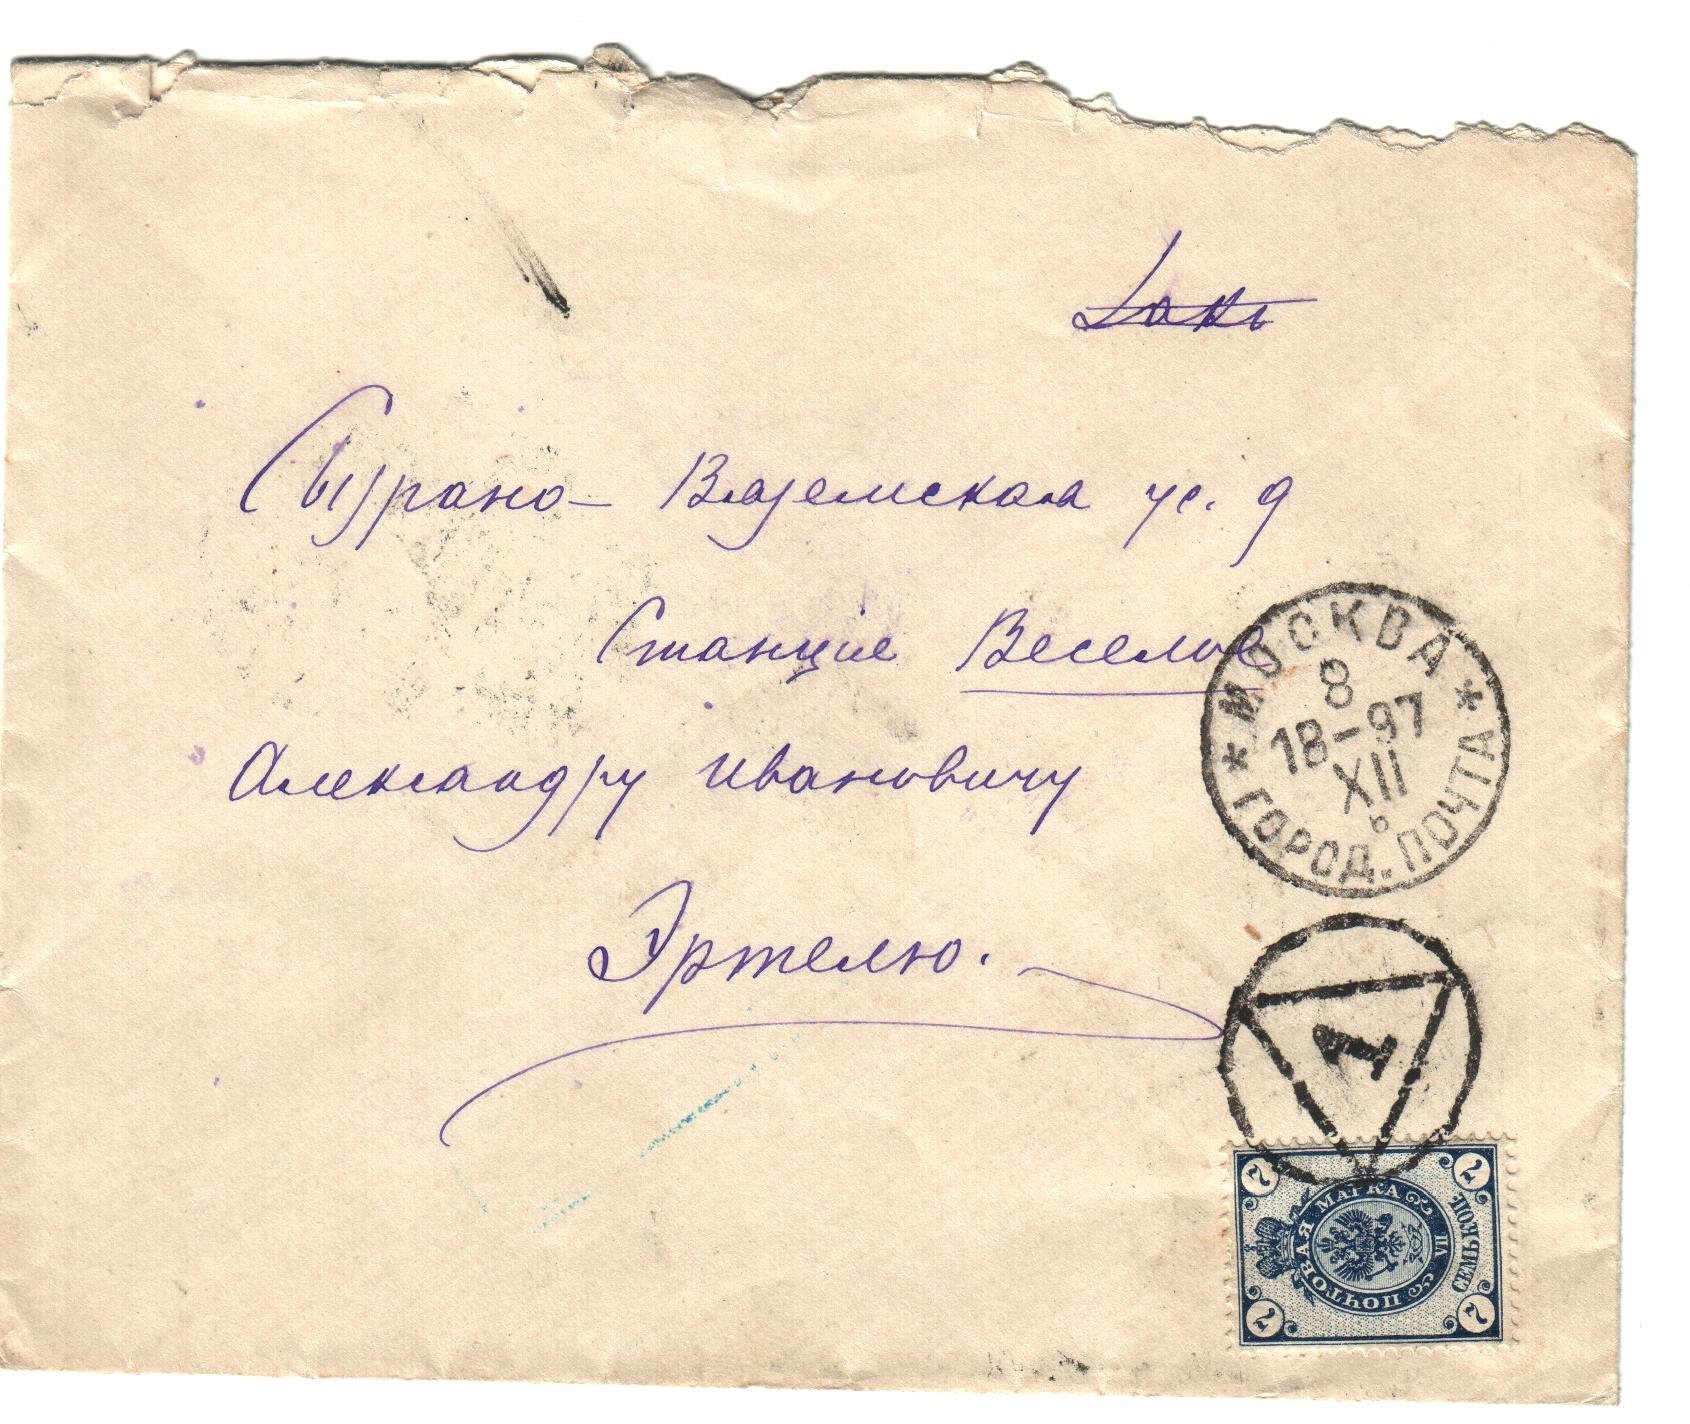 Сызрано- Вяземская ж. д
Станцие Веселое
Александру Ивановичу
Эртелю.
* МОСКВА *
8
18-97
XII
6
ГОРОД. ПОЧТА
1
ПОЧТОВАЯ МАРКА
СЕМЬ КОП.
7 7 7 7